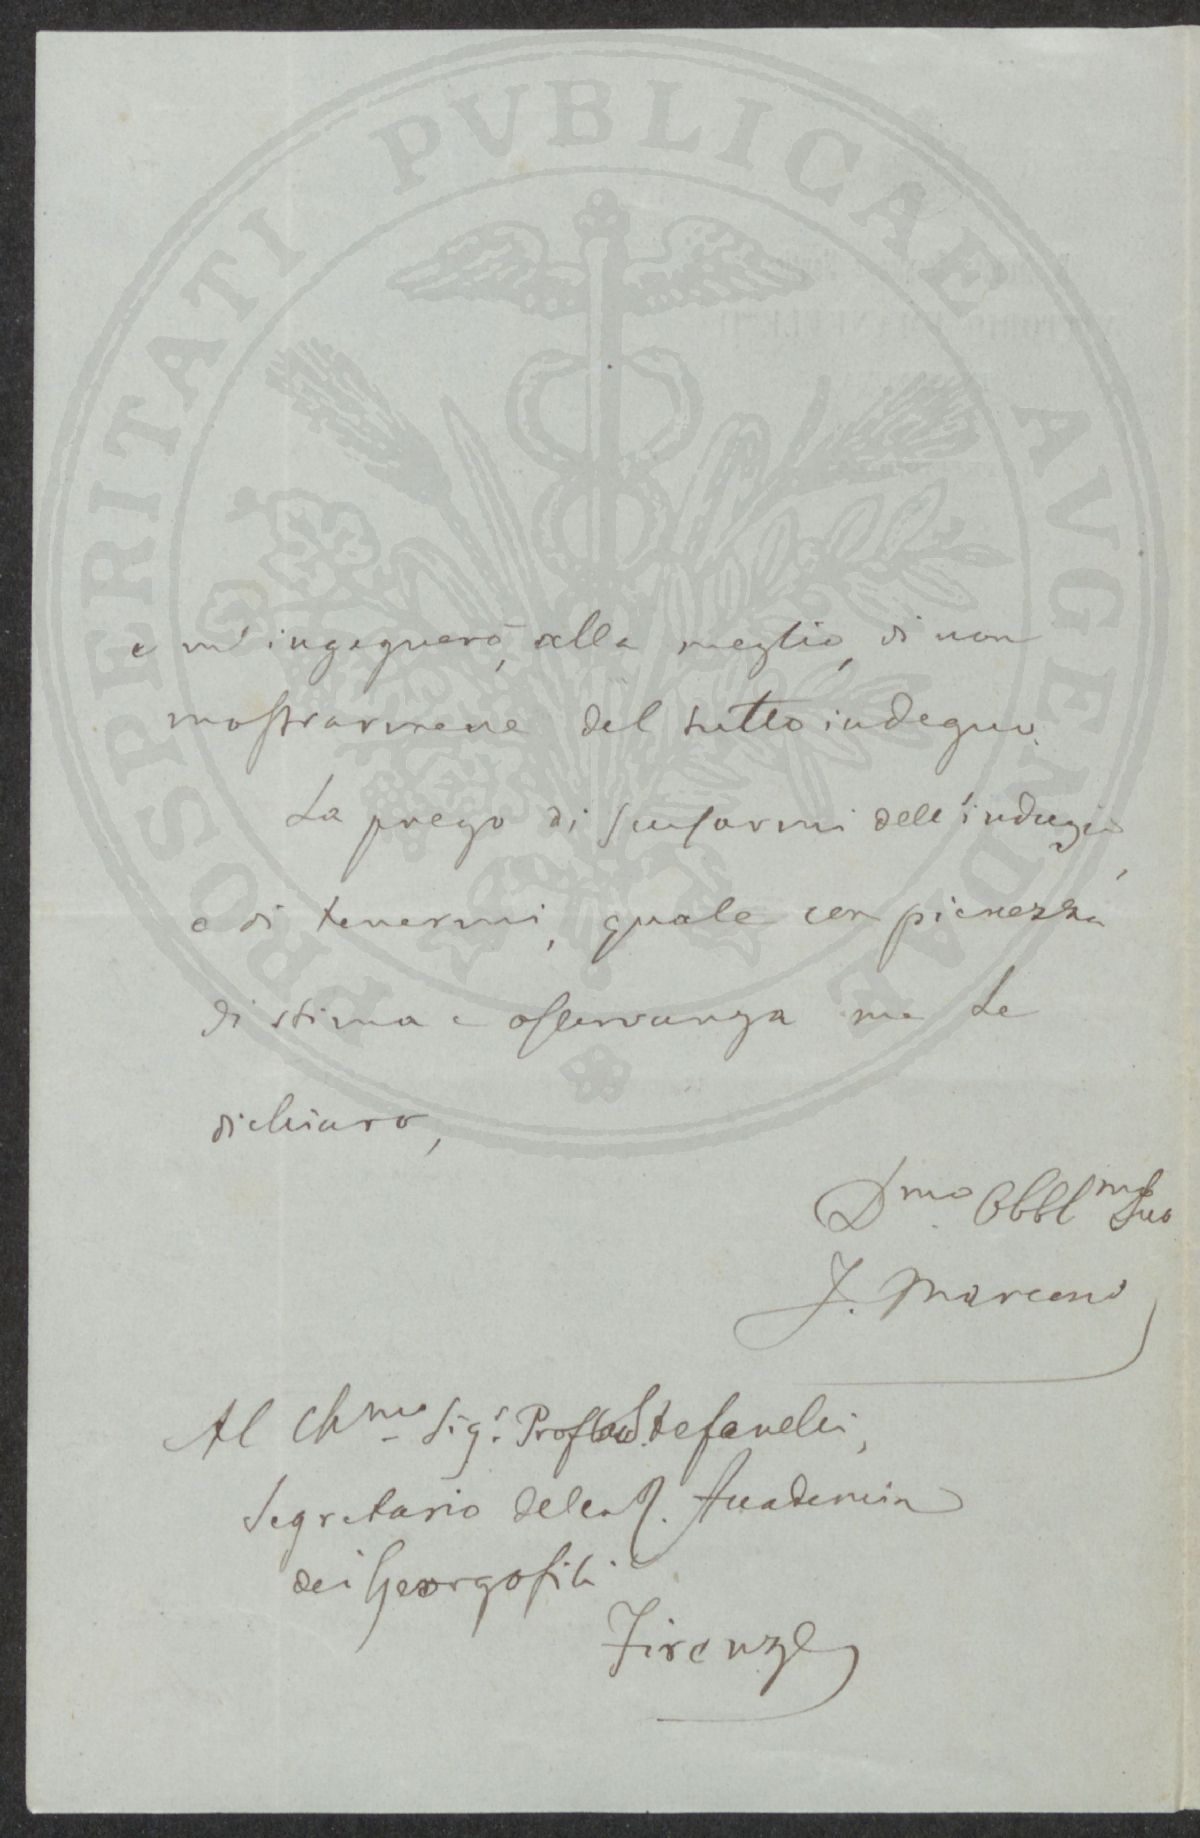 PROSPERITATI PUBLICAE AVGENDAE
e m'ingegnerò, alla meglio, di non
mostrarmene del tutto indegno.
La prego di scusarmi dell'indugio,
e di tenermi, quale con pienezza
di stima e osservanza me Le
dichiaro,
Dmo Obblmo Suo
J. Marconi
Al Chmo Sigr. Prof. Stefanelli,
Segretario della R. Accademia
dei Georgofili
Firenze